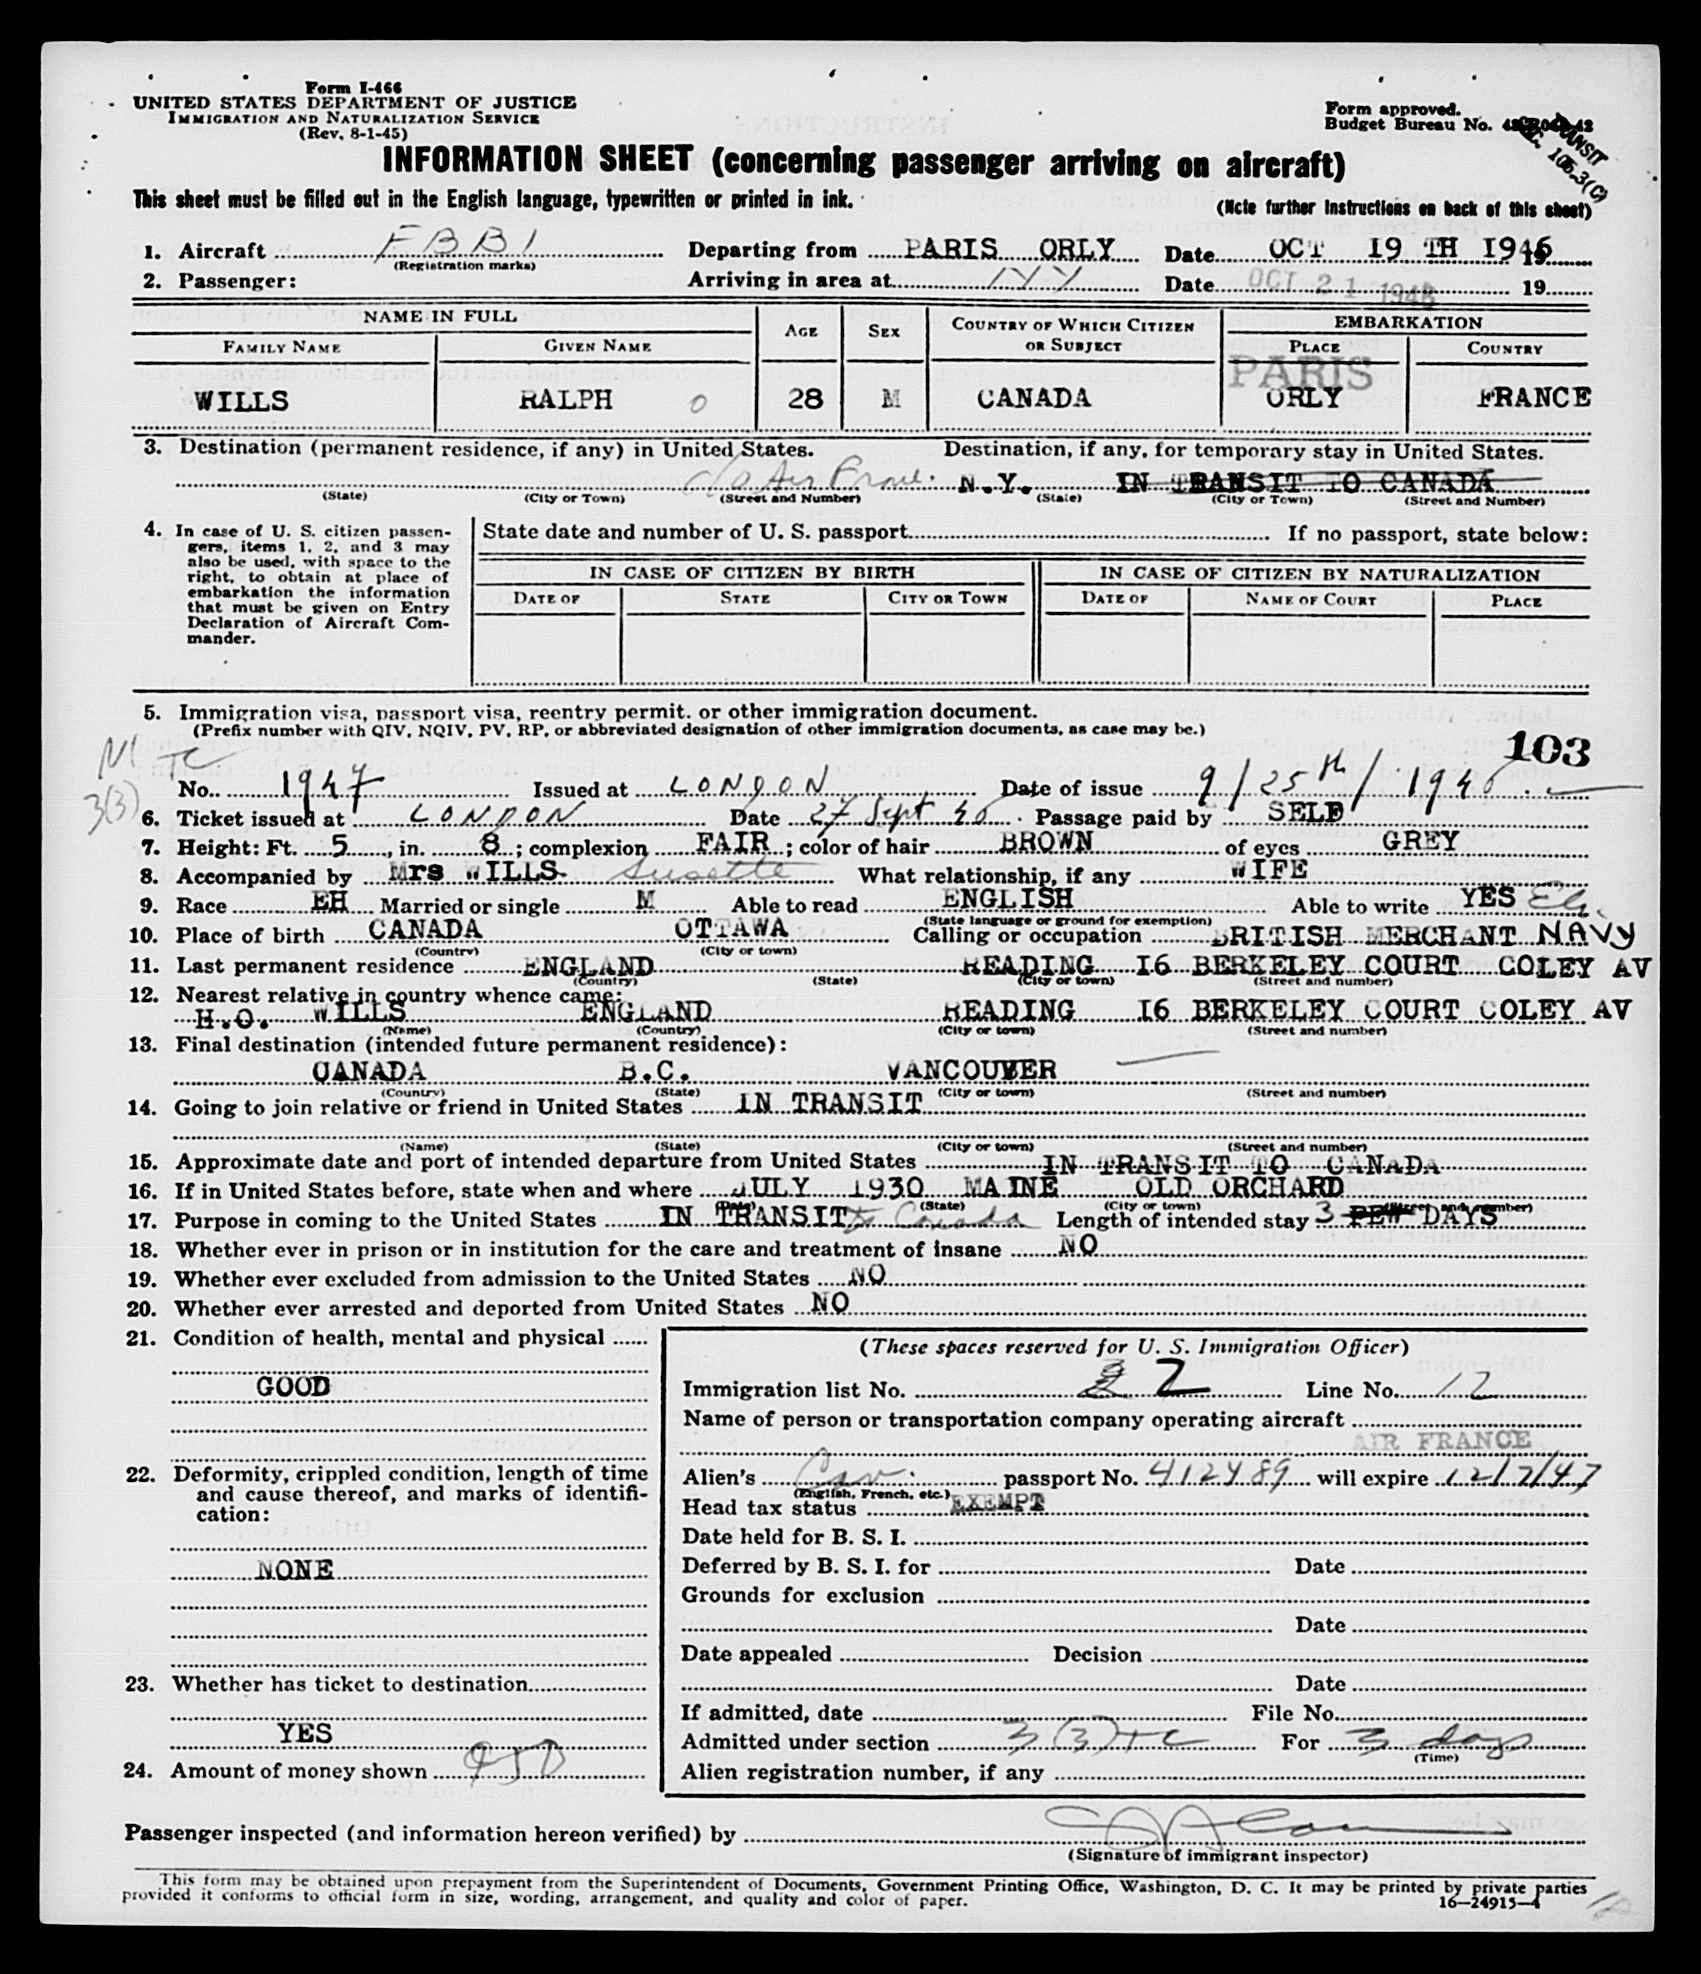 Form I-466
UNITED STATES DEPARTMENT OF JUSTICE
IMMIGRATION AND NATURALIZATION SERVICE
(Rev. 8-1-45)
Form approved.
Budget Bureau No.
TRANSIT
SEC. 105.3(C)
INFORMATION SHEET (concerning passenger arriving on aircraft)
This sheet must be filled out in the English language, typewritten or printed in ink.
(Note further instructions on back of this sheet)
1. Aircraft FBBI Departing from PARIS ORLY Date OCT 19 TH 1946
(Registration marks)
2. Passenger: Arriving in area at Date OCT 21 1946 19
NAME IN FULL AGE SEX COUNTRY OF WHICH CITIZEN OR SUBJECT EMBARKATION
FAMILY NAME GIVEN NAME PLACE COUNTRY
PARIS
WILLS RALPH O 28 M CANADA ORLY FRANCE
3. Destination (permanent residence, if any) in United States. Destination, if any, for temporary stay in United States.
c/o Air France N.Y. IN TRANSIT TO CANADA
(State) (City or Town) (Street and Number) (State) (City or Town) (Street and Number)
4. In case of U. S. citizen passengers, items 1, 2, and 3 may also be used, with space to the right, to obtain at place of embarkation the information that must be given on Entry Declaration of Aircraft Commander.
State date and number of U. S. passport If no passport, state below:
IN CASE OF CITIZEN BY BIRTH IN CASE OF CITIZEN BY NATURALIZATION
DATE OF STATE CITY OR TOWN DATE OF NAME OF COURT PLACE
5. Immigration visa, passport visa, reentry permit, or other immigration document.
(Prefix number with QIV, NQIV, PV, RP, or abbreviated designation of other immigration documents, as case may be.)
103
NI TC
3(3)
No. 1947 Issued at LONDON Date of issue 9/25th/1946
6. Ticket issued at LONDON Date 27 Sept 46 Passage paid by SELF
7. Height: Ft. 5, in. 8; complexion FAIR; color of hair BROWN of eyes GREY
8. Accompanied by Mrs WILLS Susette What relationship, if any WIFE
9. Race EH Married or single M Able to read ENGLISH Able to write YES
(State language or ground for exemption)
10. Place of birth CANADA OTTAWA Calling or occupation BRITISH MERCHANT NAVY
(Country) (City or town)
11. Last permanent residence ENGLAND READING 16 BERKELEY COURT COLEY AV
(Country) (State) (City or town) (Street and number)
12. Nearest relative in country whence came:
H.O. WILLS ENGLAND READING 16 BERKELEY COURT COLEY AV
(Name) (Country) (City or town) (Street and number)
13. Final destination (intended future permanent residence):
CANADA B.C. VANCOUVER
(Country) (State) (City or town) (Street and number)
14. Going to join relative or friend in United States IN TRANSIT
(Name) (State) (City or town) (Street and number)
15. Approximate date and port of intended departure from United States IN TRANSIT TO CANADA
16. If in United States before, state when and where JULY 1930 MAINE OLD ORCHARD
(Date) (State) (City or town) (Street and number)
17. Purpose in coming to the United States IN TRANSIT to Canada Length of intended stay 3 FEW DAYS
18. Whether ever in prison or in institution for the care and treatment of insane NO
19. Whether ever excluded from admission to the United States NO
20. Whether ever arrested and deported from United States NO
21. Condition of health, mental and physical
GOOD
22. Deformity, crippled condition, length of time and cause thereof, and marks of identification:
NONE
23. Whether has ticket to destination
YES
24. Amount of money shown
(These spaces reserved for U. S. Immigration Officer)
Immigration list No. 2 Line No. 12
Name of person or transportation company operating aircraft
AIR FRANCE
Alien's Can. passport No. 412489 will expire 12/7/47
(English, French, etc.)
Head tax status EXEMPT
Date held for B. S. I.
Deferred by B. S. I. for Date
Grounds for exclusion
Date
Date appealed Decision
Date
If admitted, date File No.
Admitted under section 3(3) TC For 3 days
(Time)
Alien registration number, if any
Passenger inspected (and information hereon verified) by
(Signature of immigrant inspector)
This form may be obtained upon prepayment from the Superintendent of Documents, Government Printing Office, Washington, D. C. It may be printed by private parties
provided it conforms to official form in size, wording, arrangement, and quality and color of paper.
16—24915-4